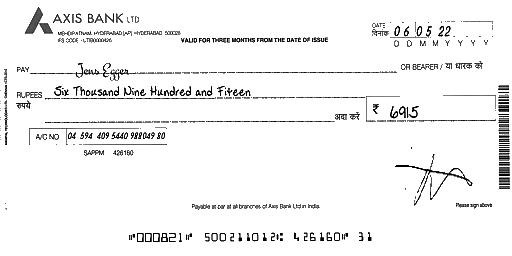 AXIS BANK LTD
MEHDIPATNAM, HYDERABAD [AP] HYDERABAD 500028
IFS CODE - UTIB0000426
VALID FOR THREE MONTHS FROM THE DATE OF ISSUE
DATE
दिनांक 06 05 22
D D M M Y Y Y Y
PAY Jens Egger OR BEARER / या धारक को
RUPEES Six Thousand Nine Hundred and Fifteen
रुपये
अदा करें ₹ 6915
A/C NO 04 594 409 5440 988049 80
SAPPM 426160
Payable at par at all branches of Axis Bank Ltd in India.
Please sign above
"000821" 500211012: 426160" 31